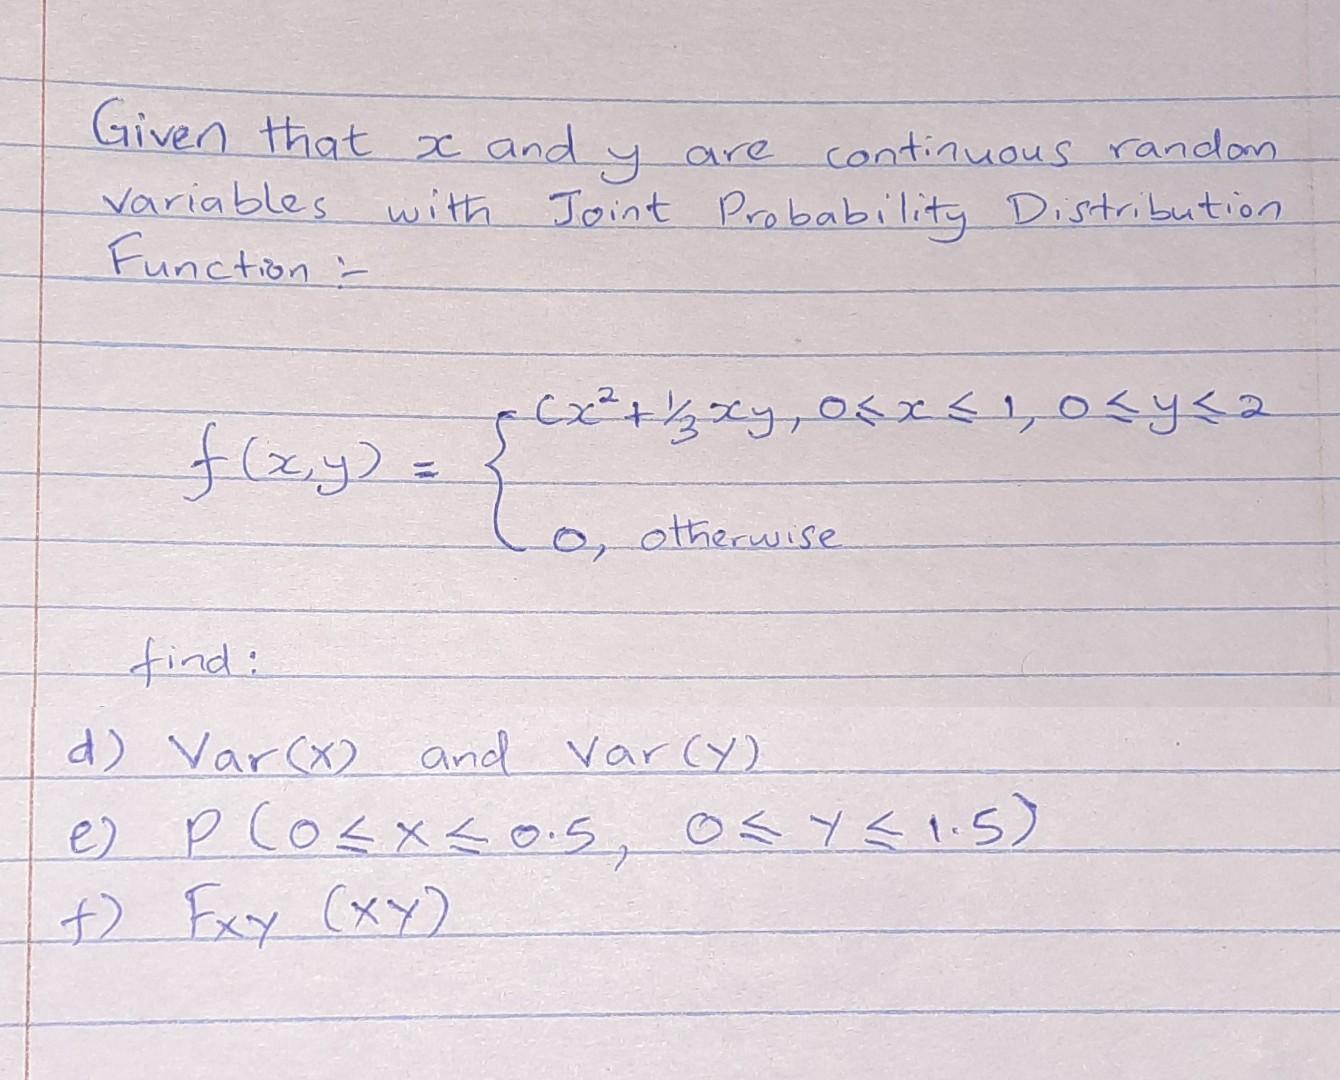 Given that x and y are continuous random
variables with Joint Probability Distribution
Function :-
f(x,y) = { Cx² + 1/3 xy, 0 ≤ x ≤ 1, 0 ≤ y ≤ 2
0, otherwise
find:
d) Var(X) and Var(Y)
e) P(0 ≤ X ≤ 0.5, 0 ≤ Y ≤ 1.5)
f) FXY (XY)